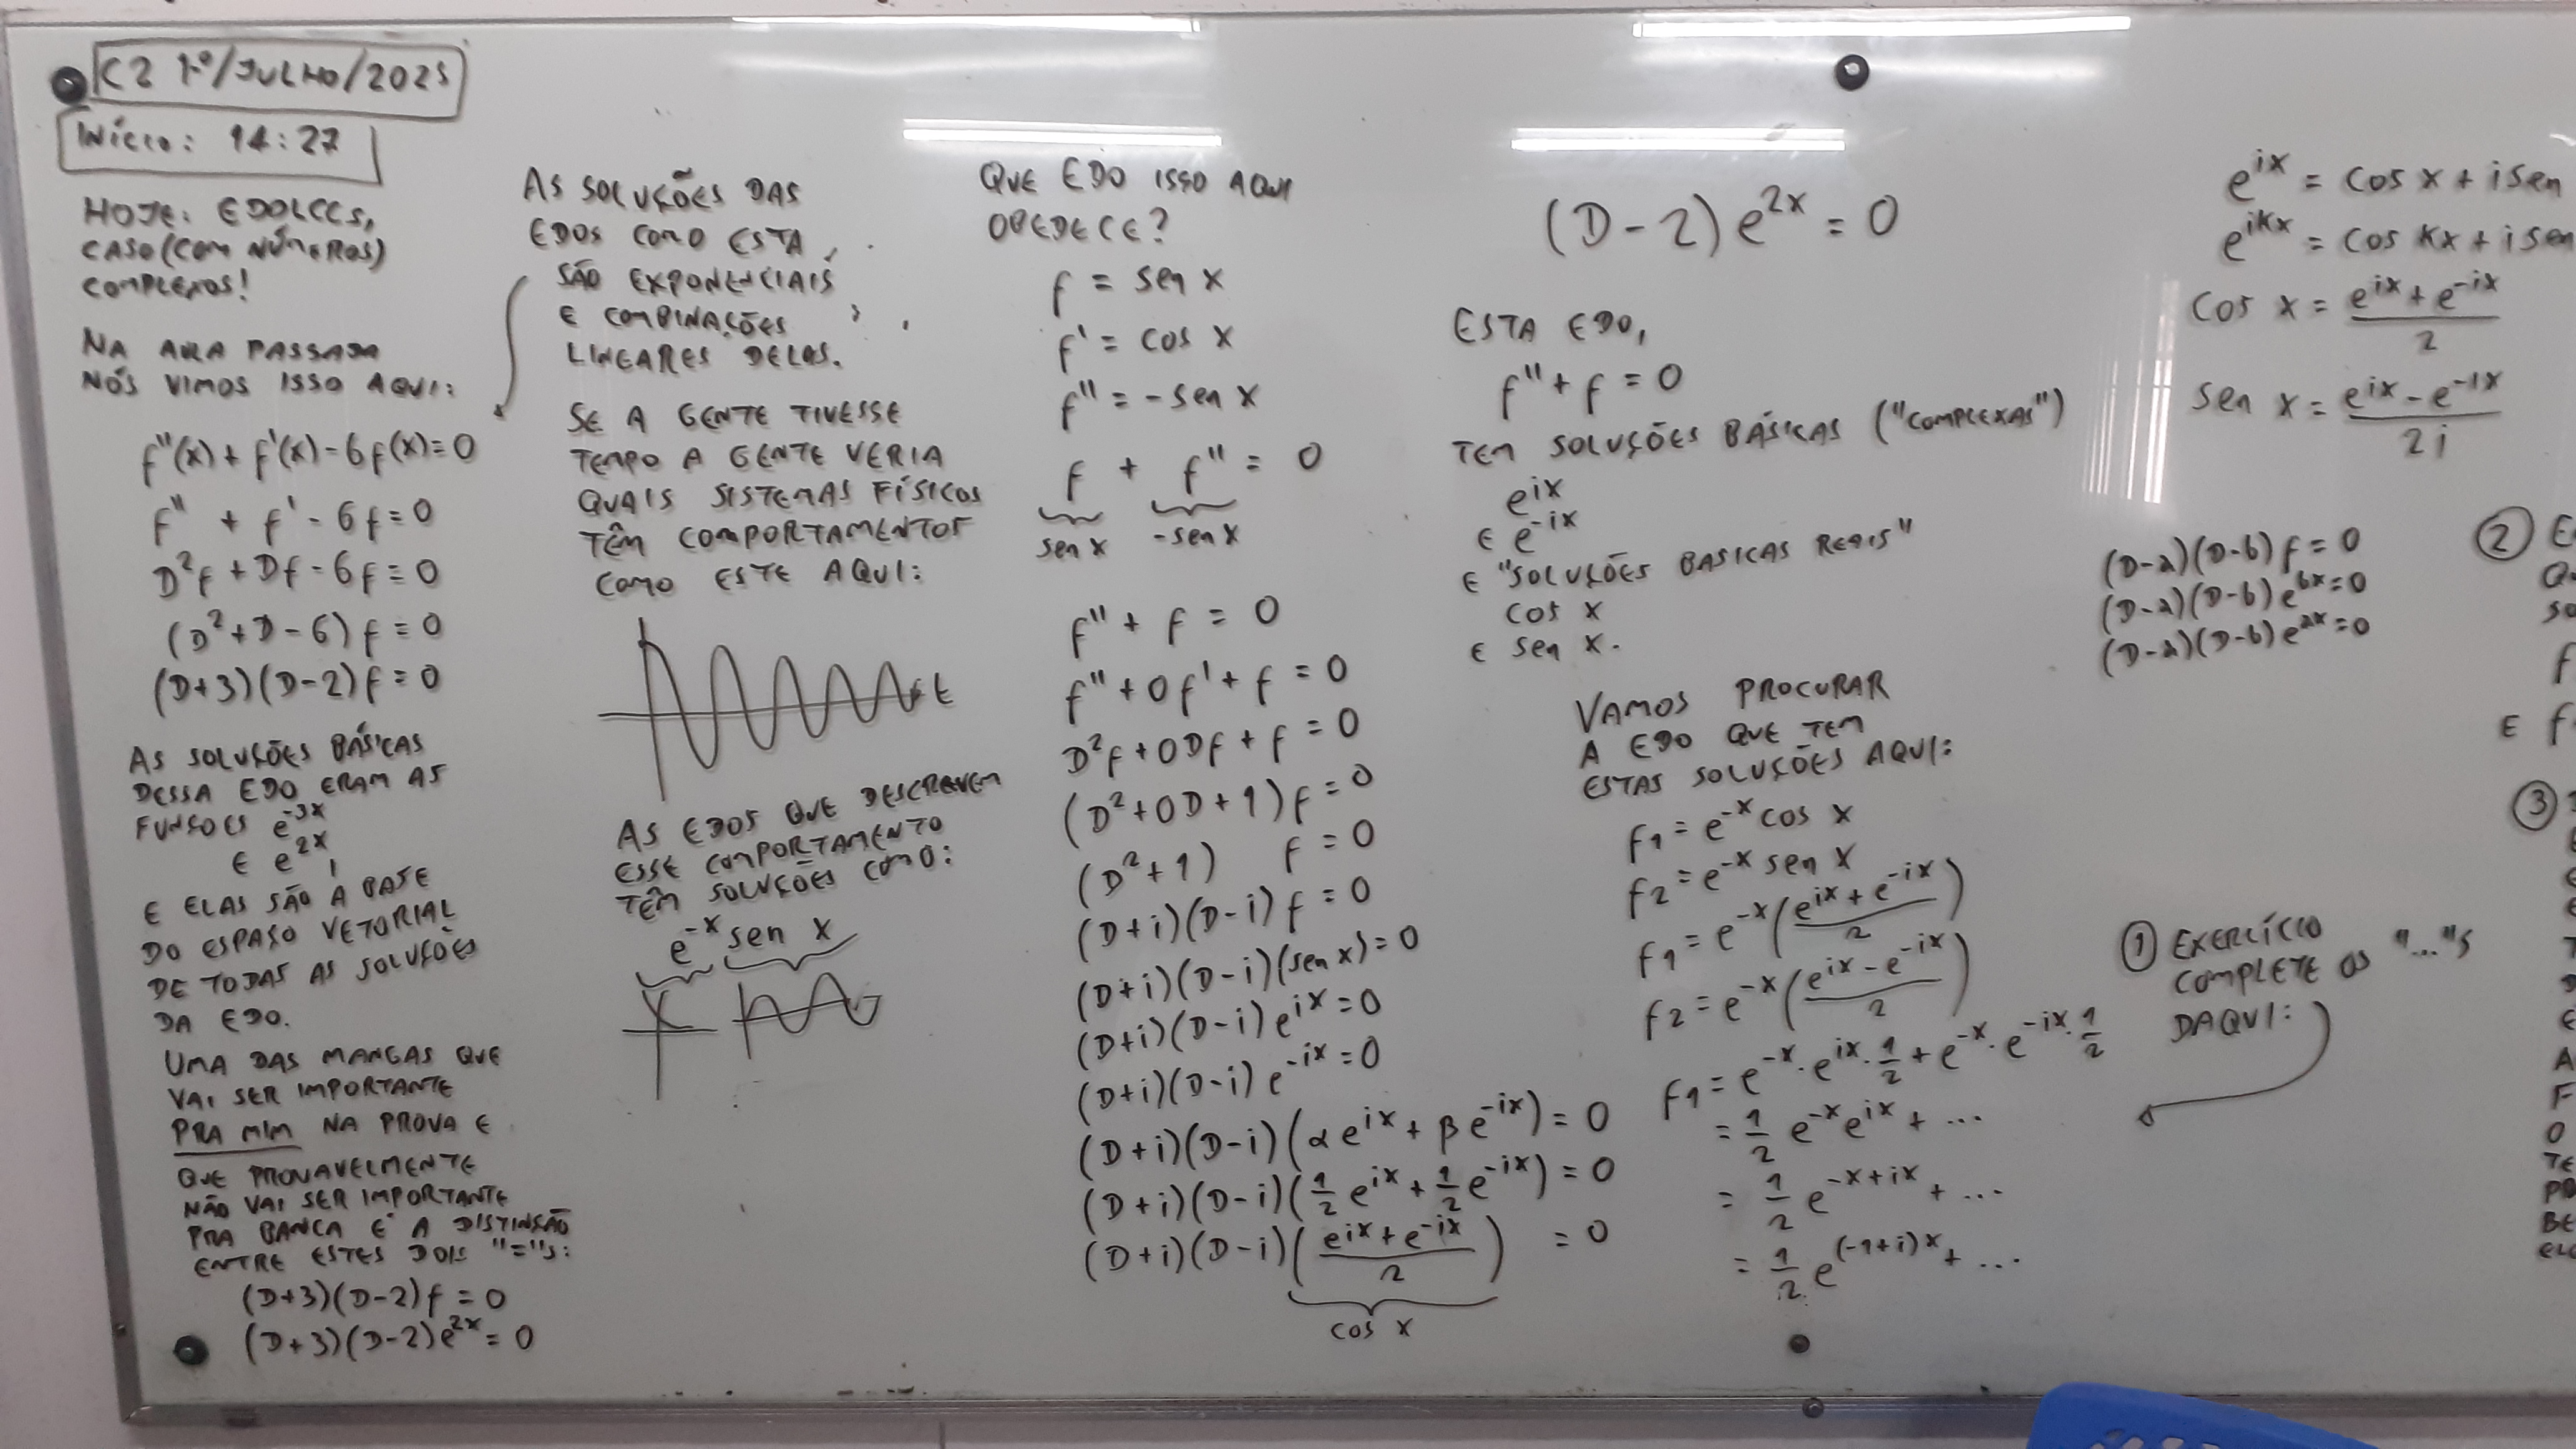 C2 1º/JULHO/2025
INÍCIO: 14:27
HOJE: EDOLCCs,
CASO (COM NÚMEROS)
COMPLEXOS!
NA AULA PASSADA
NÓS VIMOS ISSO AQUI:
f''(x) + f'(x) - 6f(x) = 0
f'' + f' - 6f = 0
D²f + Df - 6f = 0
(D² + D - 6) f = 0
(D+3)(D-2)f = 0
AS SOLUÇÕES BÁSICAS
DESSA EDO ERAM AS
FUNÇOES e^{-3x}
E e^{2x},
E ELAS SÃO A BASE
DO ESPAÇO VETORIAL
DE TODAS AS SOLUÇÕES
DA EDO.
UMA DAS MANGAS QUE
VAI SER IMPORTANTE
PRA MIM NA PROVA E
QUE PROVAVELMENTE
NÃO VAI SER IMPORTANTE
PRA BANCA É A DISTINÇÃO
ENTRE ESTES DOIS "="s:
(D+3)(D-2)f = 0
(D+3)(D-2)e^{2x} = 0
AS SOLUÇÕES DAS
EDOS COMO ESTA
SÃO EXPONENCIAIS
E COMBINAÇÕES
LINEARES DELAS.
SE A GENTE TIVESSE
TEMPO A GENTE VERIA
QUAIS SISTEMAS FÍSICOS
TÊM COMPORTAMENTOS
COMO ESTE AQUI:
t
AS EDOS QUE DESCREVEM
ESSE COMPORTAMENTO
TÊM SOLUÇÕES COMO:
e^{-x} sen x
QUE EDO ISSO AQUI
OBEDECE?
f = sen x
f' = cos x
f'' = -sen x
f + f'' = 0
sen x -sen x
f'' + f = 0
f'' + 0f' + f = 0
D²f + 0Df + f = 0
(D² + 0D + 1) f = 0
(D² + 1) f = 0
(D+i)(D-i) f = 0
(D+i)(D-i)(sen x) = 0
(D+i)(D-i) e^{ix} = 0
(D+i)(D-i) e^{-ix} = 0
(D+i)(D-i)(αe^{ix} + βe^{-ix}) = 0
(D+i)(D-i)(1/2 e^{ix} + 1/2 e^{-ix}) = 0
(D+i)(D-i)((e^{ix} + e^{-ix})/2) = 0
cos x
(D-2) e^{2x} = 0
ESTA EDO,
f'' + f = 0
TEM SOLUÇÕES BÁSICAS ("COMPLEXAS")
e^{ix}
E e^{-ix}
E "SOLUÇÕES BASICAS REAIS"
cos x
E sen x.
VAMOS PROCURAR
A EDO QUE TEM
ESTAS SOLUÇÕES AQUI:
f1 = e^{-x} cos x
f2 = e^{-x} sen x
f1 = e^{-x}((e^{ix} + e^{-ix})/2)
f2 = e^{-x}((e^{ix} - e^{-ix})/2)
f1 = e^{-x}·e^{ix}·1/2 + e^{-x}·e^{-ix}·1/2
= 1/2 e^{-x}e^{ix} + ...
= 1/2 e^{-x+ix} + ...
= 1/2 e^{(-1+i)x} + ...
e^{ix} = cos x + i sen
e^{ikx} = cos kx + i sen
cos x = (e^{ix} + e^{-ix})/2
sen x = (e^{ix} - e^{-ix})/2i
(D-a)(D-b) f = 0
(D-a)(D-b) e^{bx} = 0
(D-a)(D-b) e^{ax} = 0
① EXERCÍCIO
COMPLETE OS "..."s
DAQUI:
②
E f
③